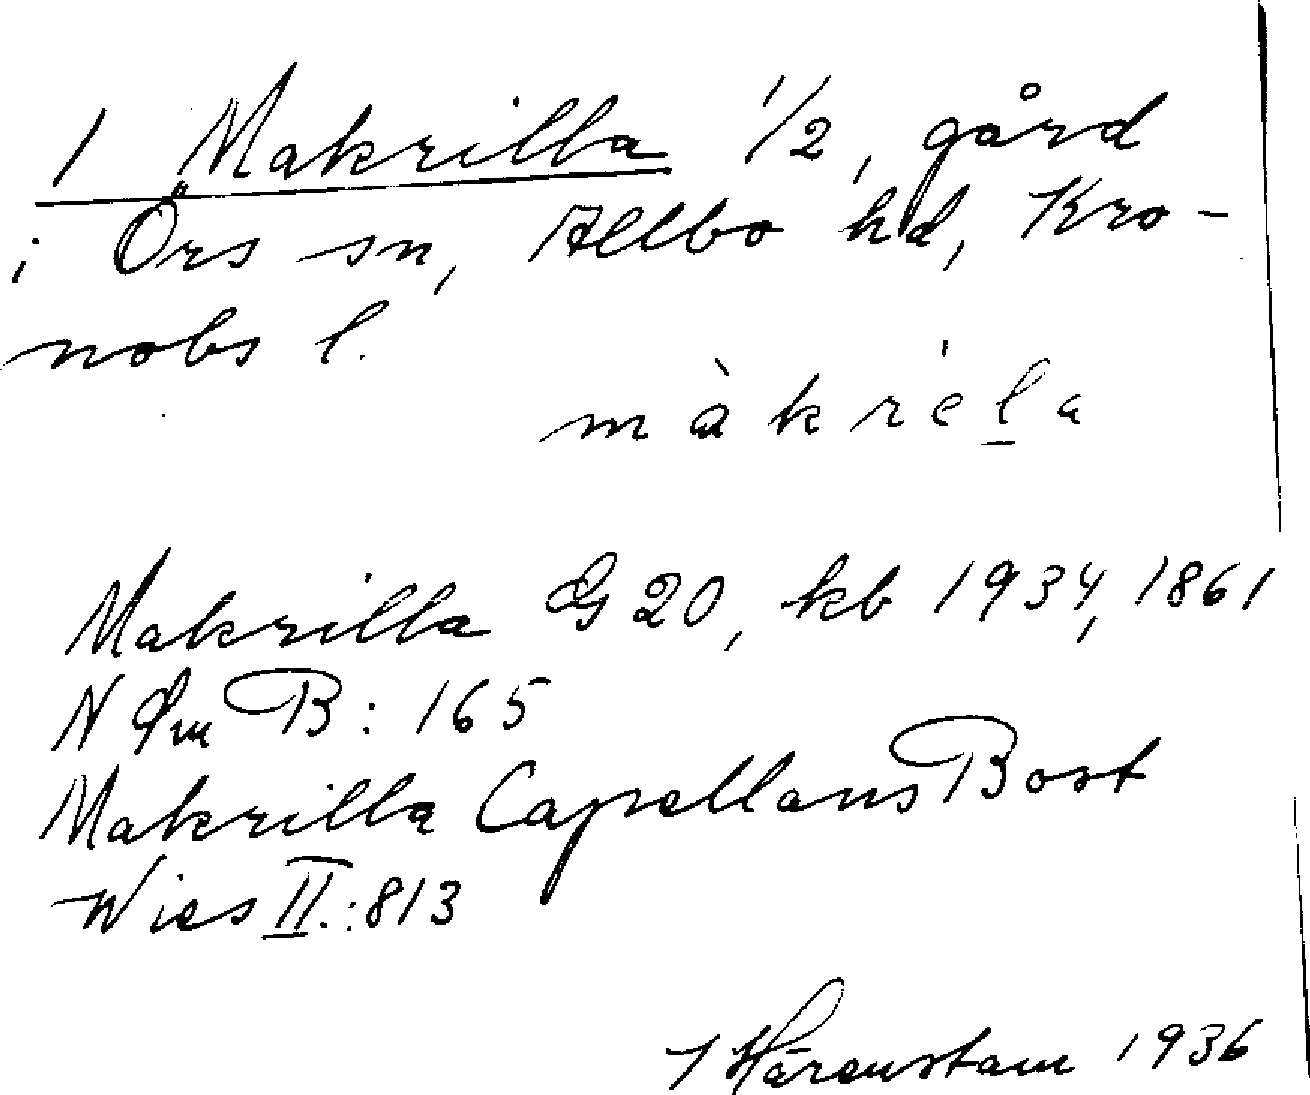 1 Makrilla 1/2, gård
i Örs sn, Allbo hd, Kro-
nobs l.
màkrela
Makrilla G 20, kb 1934, 1861
N B: 165
Makrilla Capellans Bost
Wies II.: 813
Härenstam 1936